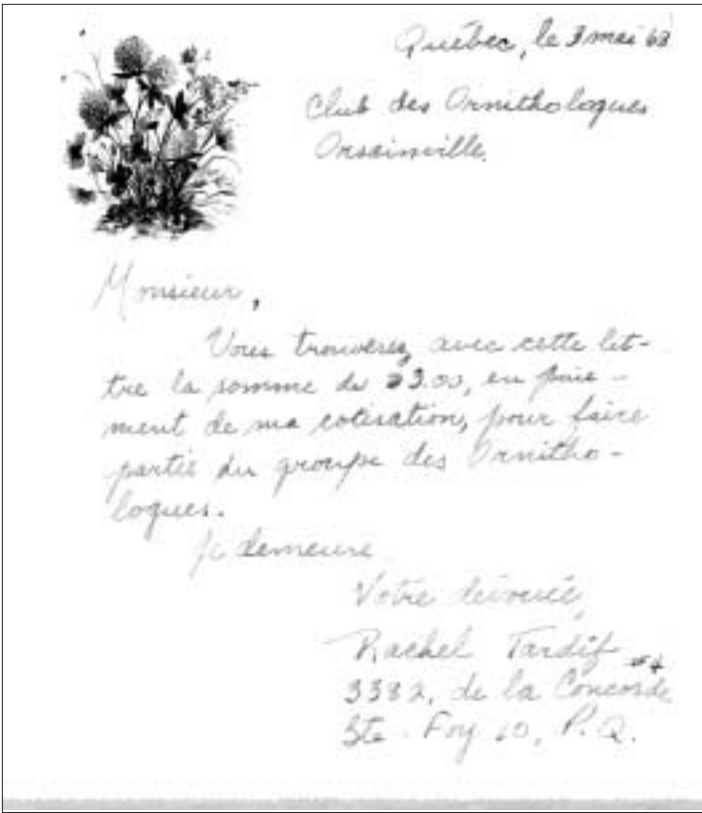 Québec, le 3 mai 68
Club des Ornithologues
Orsainville.
Monsieur,
Vous trouverez avec cette let-
tre la somme de $3.00, en paie-
ment de ma cotisation, pour faire
partie du groupe des Ornitho-
logues.
Je demeure
Votre dévouée,
Rachel Tardif
3382, de la Concorde
Ste-Foy 10, P.Q.